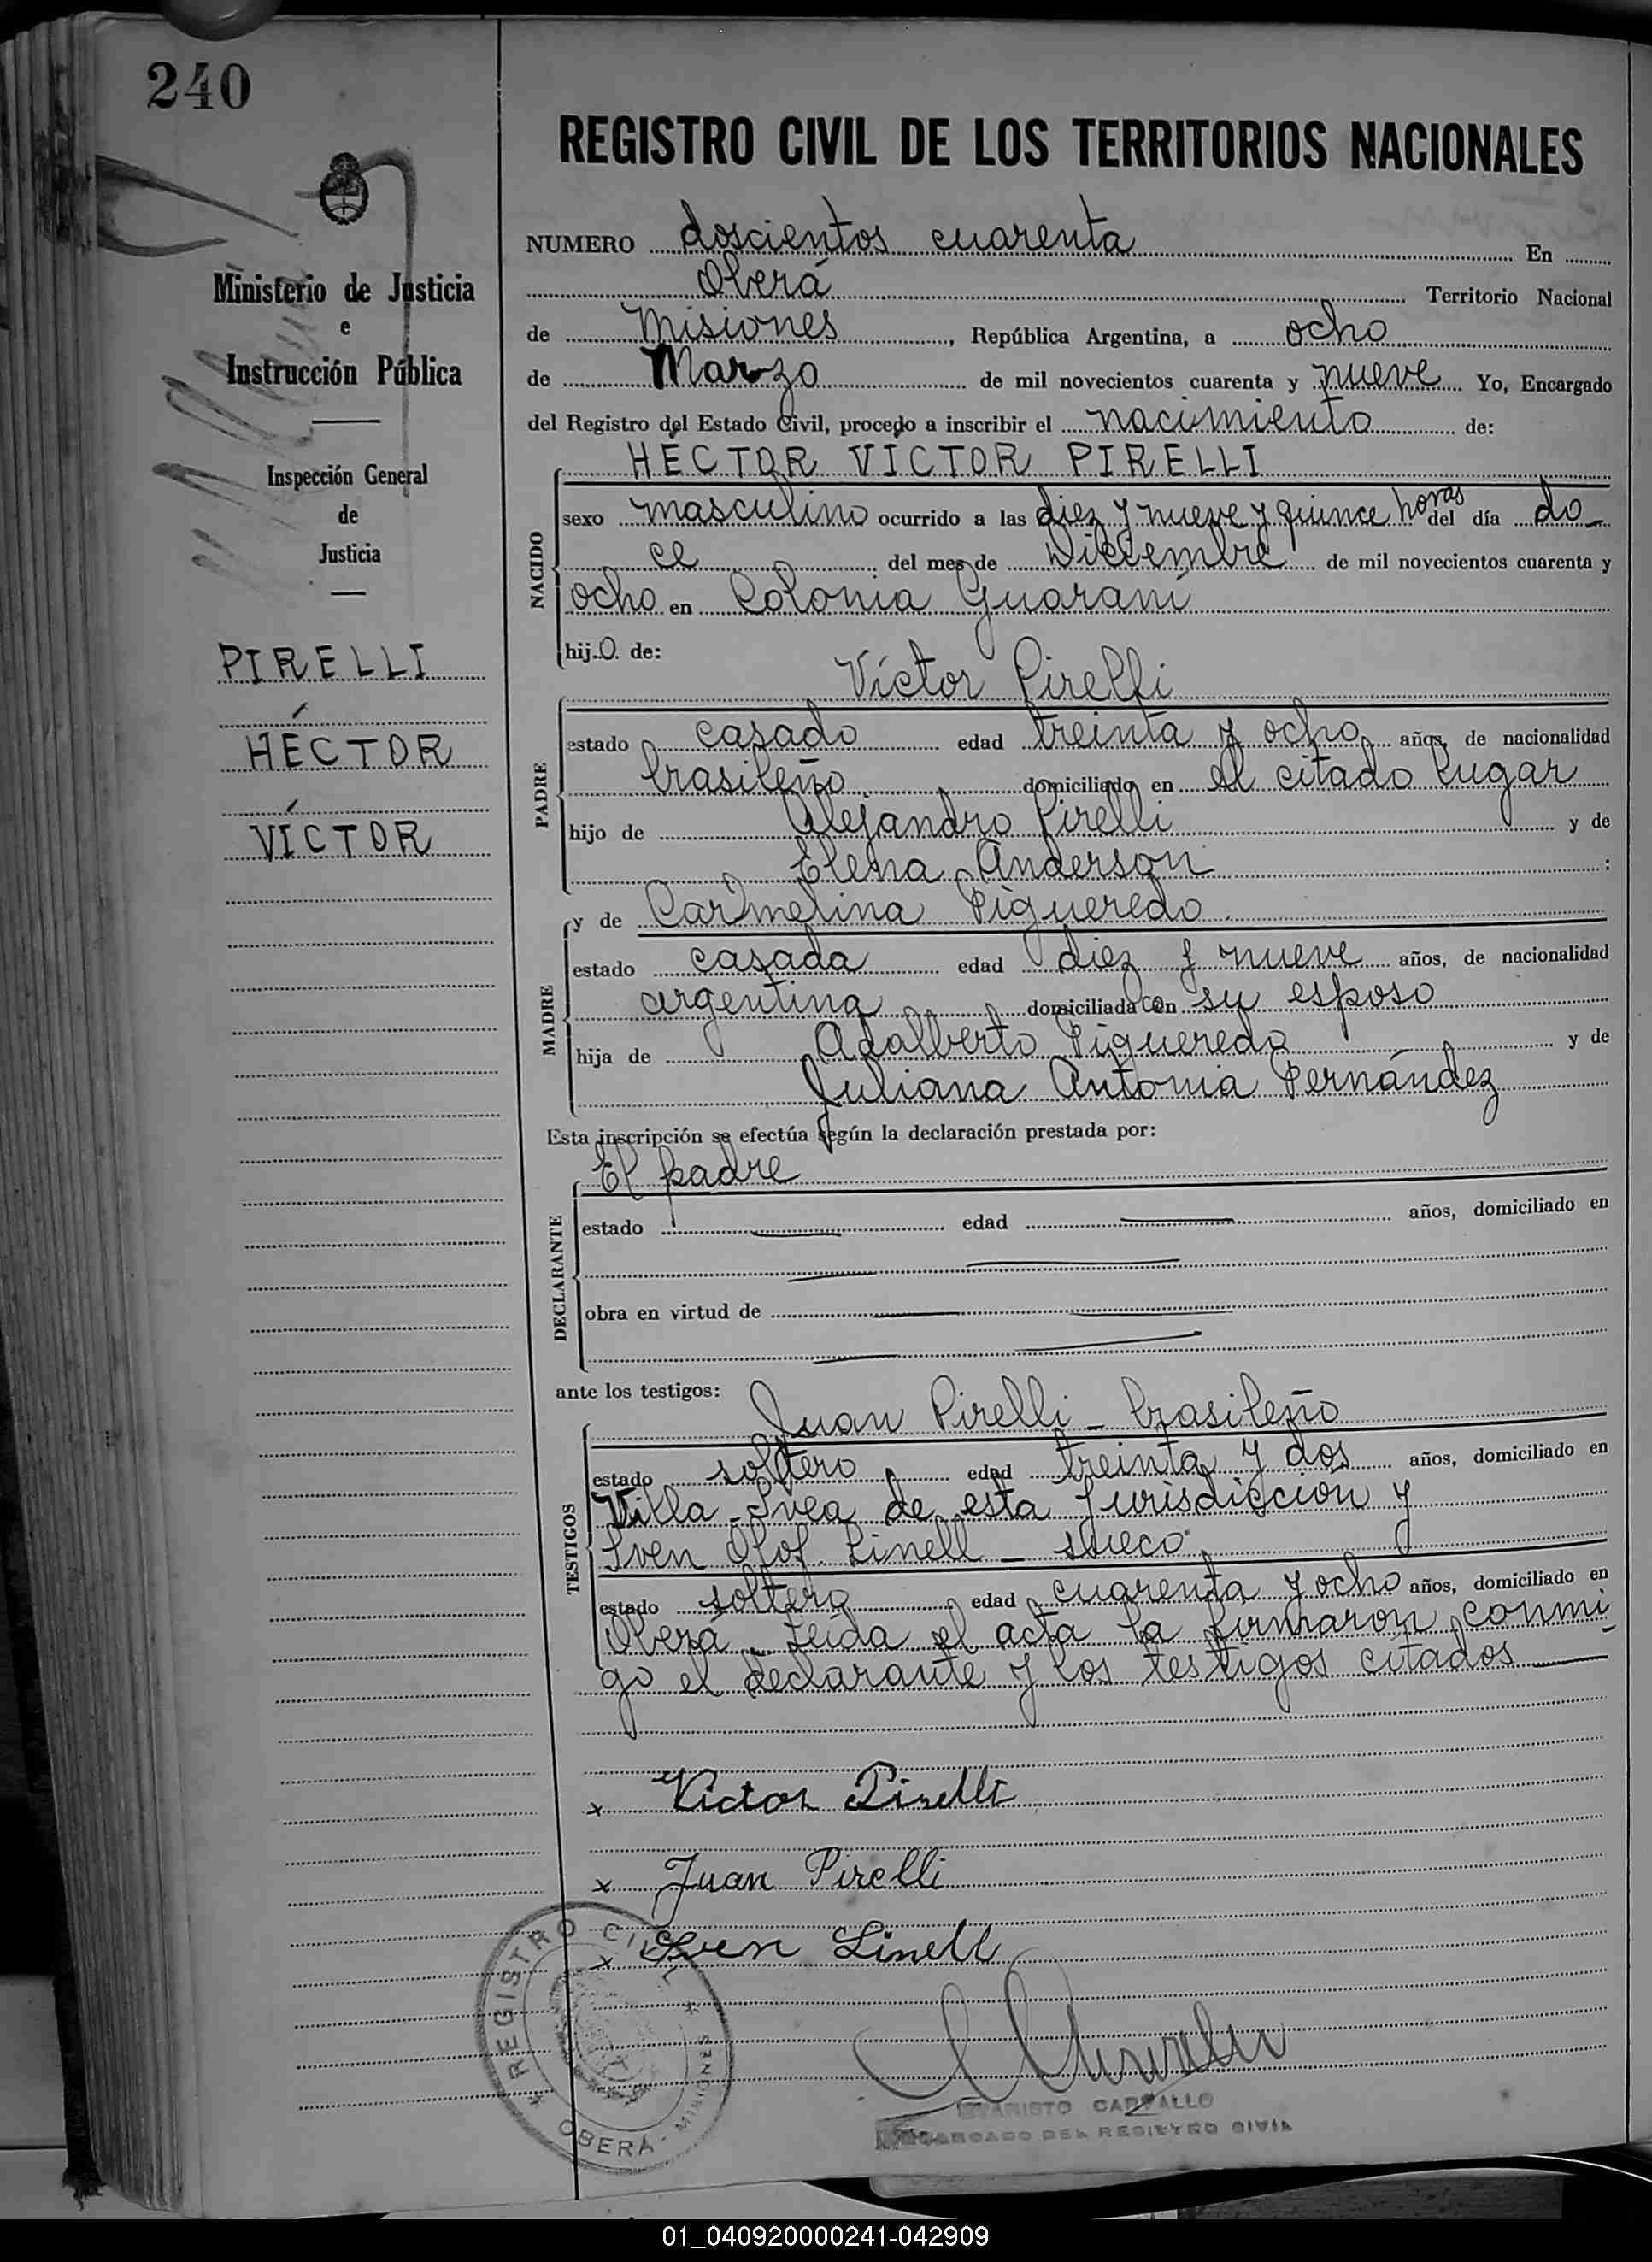 240
REGISTRO CIVIL DE LOS TERRITORIOS NACIONALES
Ministerio de Justicia
e
Instrucción Pública
Inspección General
de
Justicia
PIRELLI
HÉCTOR
VÍCTOR
NUMERO doscientos cuarenta En
Oberá Territorio Nacional
de Misiones, República Argentina, a ocho
de Marzo de mil novecientos cuarenta y nueve Yo, Encargado
del Registro del Estado Civil, procedo a inscribir el nacimiento de:
HÉCTOR VICTOR PIRELLI
NACIDO
sexo masculino ocurrido a las diez y nueve y quince horas del día do-
ce del mes de Diciembre de mil novecientos cuarenta y
ocho en Colonia Guaraní
hijo de:
Víctor Pirelli
PADRE
estado casado edad treinta y ocho años, de nacionalidad
brasileño domiciliado en el citado lugar
hijo de Alejandro Pirelli y de
Elena Anderson :
y de Carmelina Figueredo
MADRE
estado casada edad diez y nueve años, de nacionalidad
argentina domiciliada con su esposo
hija de Adalberto Figueredo y de
Juliana Antonia Fernández
Esta inscripción se efectúa según la declaración prestada por:
El padre
DECLARANTE
estado edad años, domiciliado en
obra en virtud de
ante los testigos:
Juan Pirelli - brasileño
TESTIGOS
estado soltero edad treinta y dos años, domiciliado en
Villa Svea de esta jurisdicción y
Sven Olof Linell - sueco
estado soltero edad cuarenta y ocho años, domiciliado en
Oberá. Leída el acta la firmaron conmi-
go el declarante y los testigos citados
x Victor Pirelli
x Juan Pirelli
x Sven Linell
REGISTRO CIVIL
OBERÁ - MISIONES
EVARISTO CARVALLO
ENCARGADO DEL REGISTRO CIVIL
01_040920000241-042909